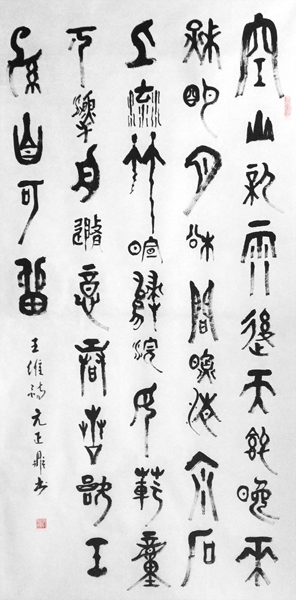 空山新雨後天氣晚來
秋明月松間照清泉石
上流竹喧歸浣女蓮動
下漁舟隨意春芳歇王
孫自可留
王維詩 書